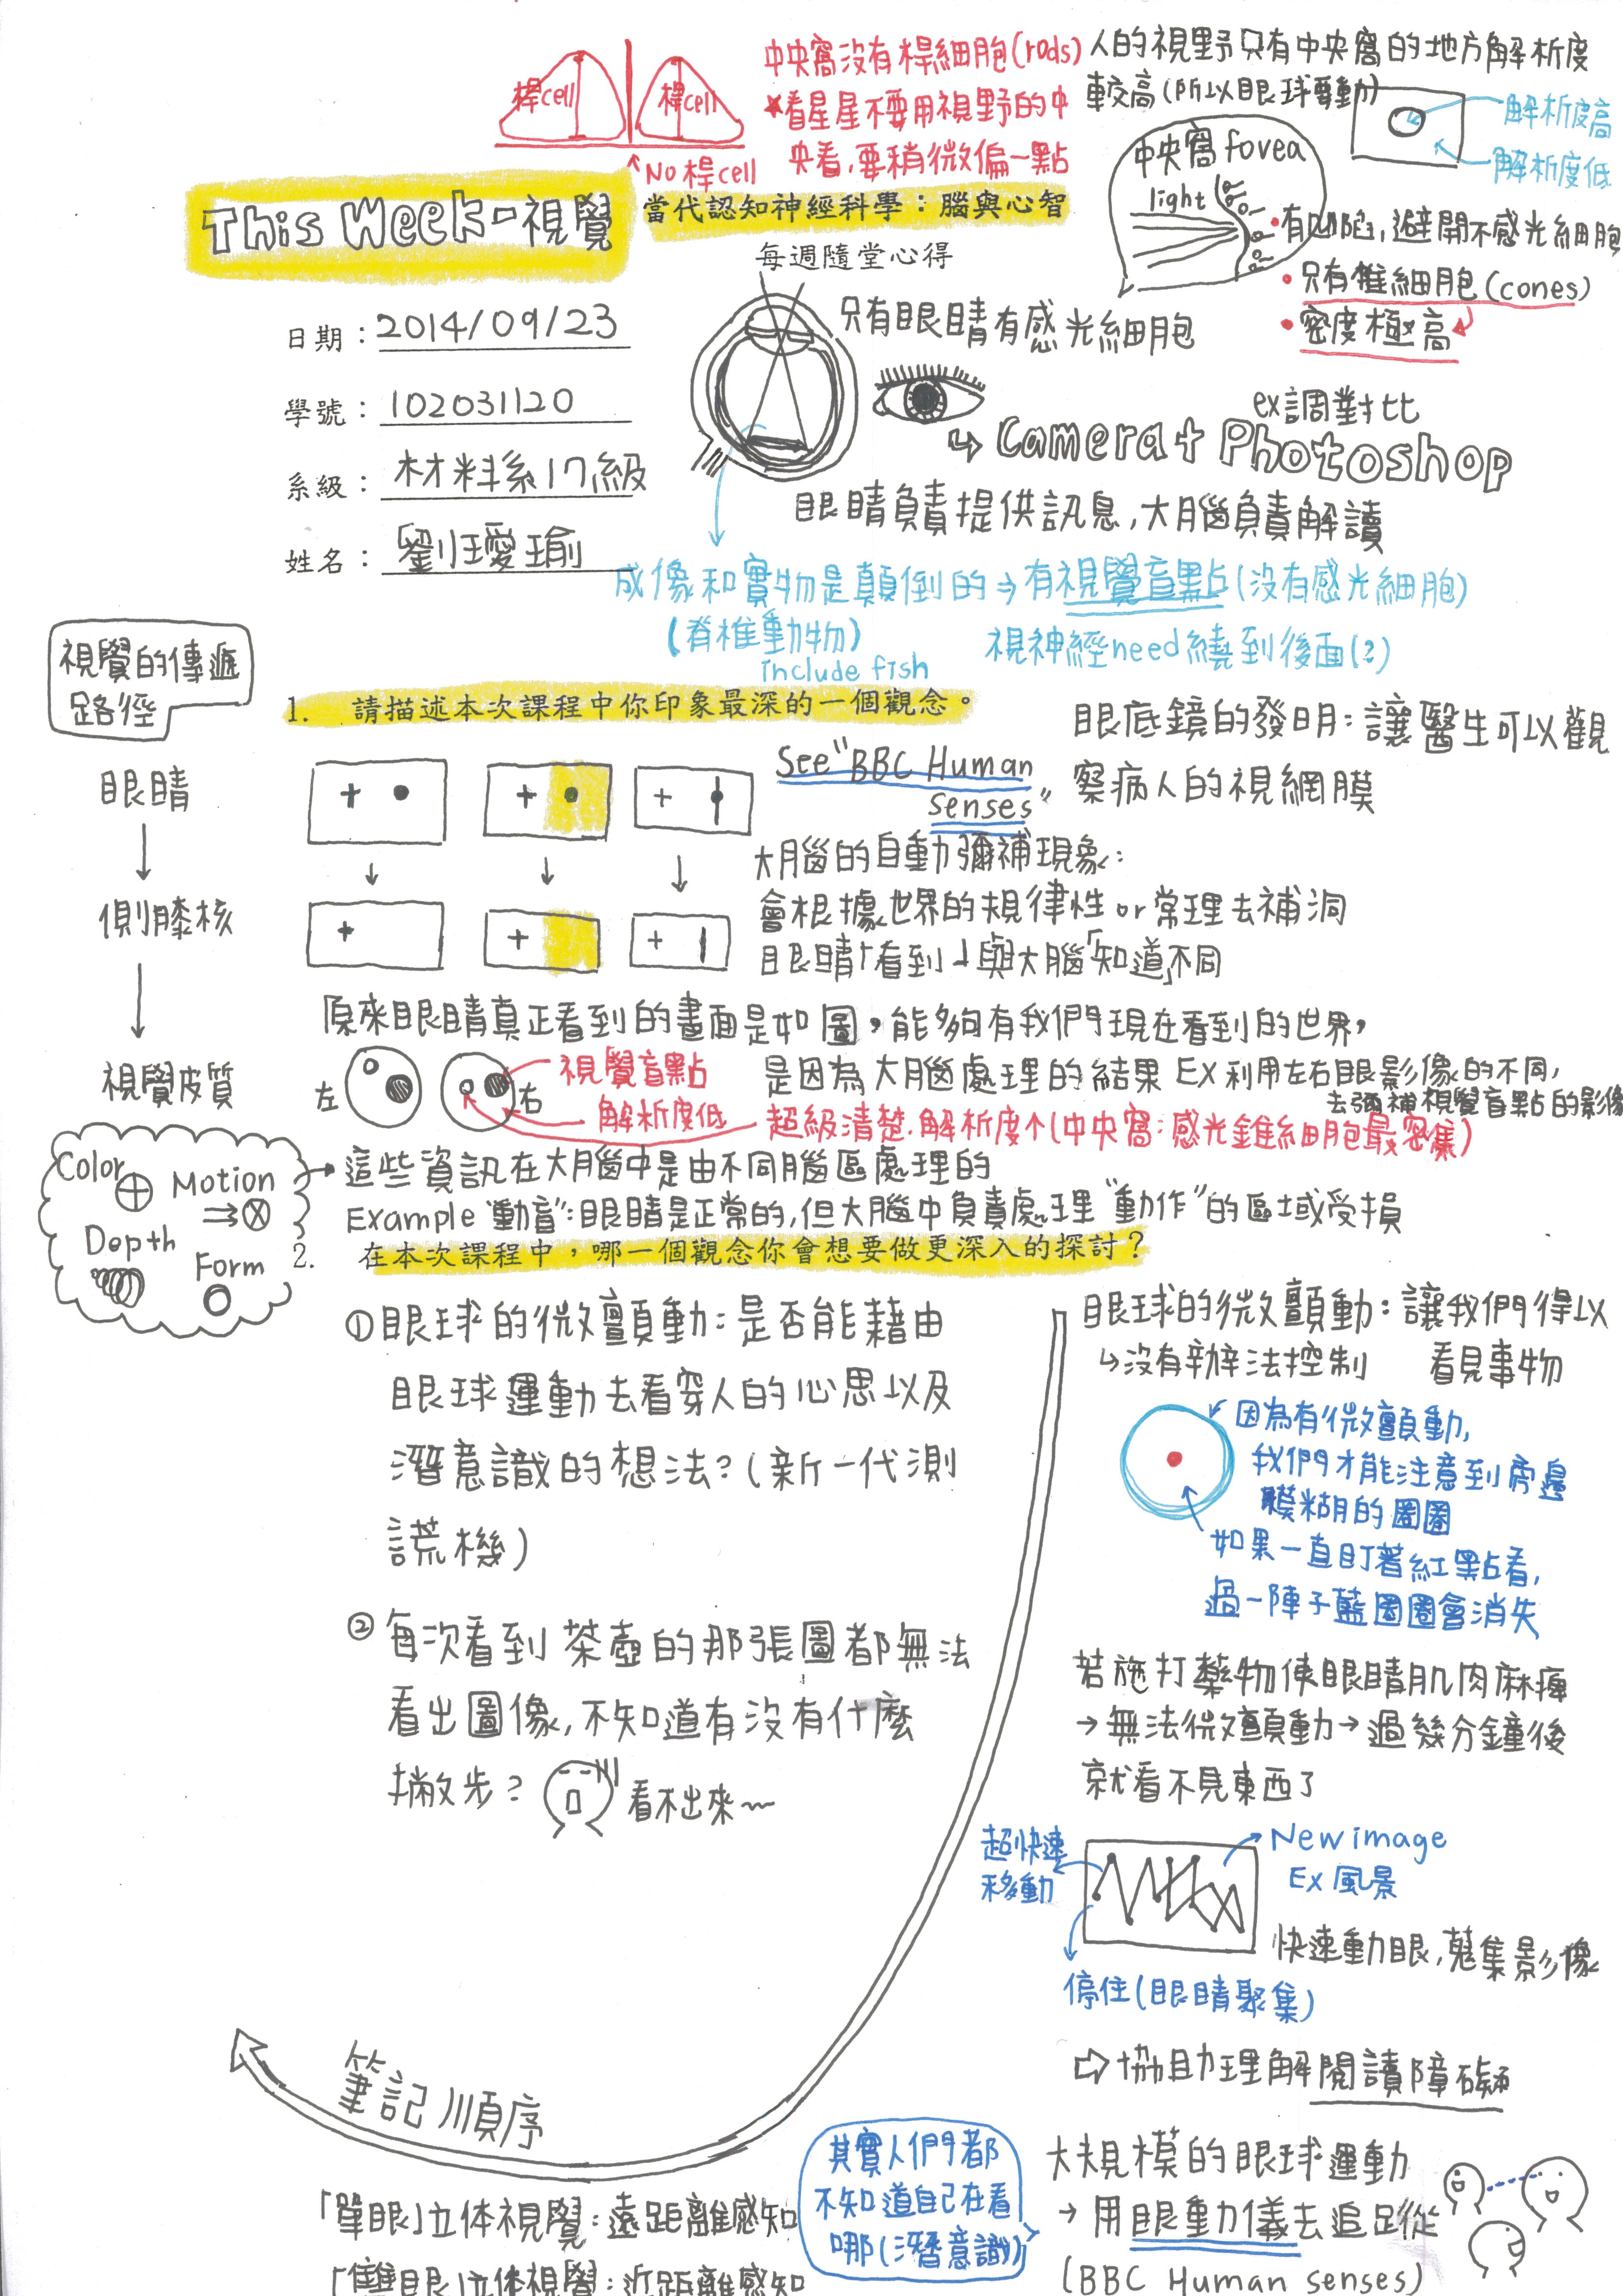 桿cell
桿cell
No 桿cell
中央窩沒有桿細胞(rods)
★看星星不要用視野的中
央看,要稍微偏一點
人的視野只有中央窩的地方解析度
較高(所以眼球要動)
解析度高
解析度低
中央窩 fovea
light
• 有凹陷,避開不感光細胞
• 只有椎細胞(cones)
• 密度極高
This Week-視覺
當代認知神經科學:腦與心智
每週隨堂心得
日期:2014/09/23
學號:102031120
系級:材料系17級
姓名:劉璦瑜
只有眼睛有感光細胞
ex調對比
↳ Camera + Photoshop
眼睛負責提供訊息,大腦負責解讀
成像和實物是顛倒的→有視覺盲點(沒有感光細胞)
(脊椎動物)
include fish
視神經need繞到後面(?)
視覺的傳遞
路徑
眼睛
側膝核
視覺皮質
Color
Motion
Depth
Form
1. 請描述本次課程中你印象最深的一個觀念。
See "BBC Human
senses"
眼底鏡的發明:讓醫生可以觀
察病人的視網膜
大腦的自動彌補現象:
會根據世界的規律性or常理去補洞
眼睛「看到」與大腦「知道」不同
原來眼睛真正看到的畫面是如圖,能夠有我們現在看到的世界,
是因為大腦處理的結果 EX 利用左右眼影像的不同,
去彌補視覺盲點的影像
左
右
視覺盲點
解析度低
超級清楚.解析度↑(中央窩:感光錐細胞最密集)
→這些資訊在大腦中是由不同腦區處理的
Example "動盲":眼睛是正常的,但大腦中負責處理"動作"的區域受損
2. 在本次課程中,哪一個觀念你會想要做更深入的探討?
①眼球的微顫動:是否能藉由
眼球運動去看穿人的心思以及
潛意識的想法?(新一代測
謊機)
②每次看到茶壺的那張圖都無法
看出圖像,不知道有沒有什麼
撇步?
看不出來~
眼球的微顫動:讓我們得以
看見事物
↳沒有辦法控制
因為有微顫動,
我們才能注意到旁邊
模糊的圈圈
如果一直盯著紅點看,
過一陣子藍圈圈會消失
若施打藥物使眼睛肌肉麻痺
→無法微顫動→過幾分鐘後
就看不見東西了
超快速
移動
New image
Ex 風景
快速動眼,蒐集影像
停住(眼睛聚集)
⇨協助理解閱讀障礙
筆記順序
大規模的眼球運動
→用眼動儀去追蹤
(BBC Human senses)
其實人們都
不知道自己在看
哪(潛意識)
「單眼」立体視覺:遠距離感知
「雙眼」立体視覺:近距離感知